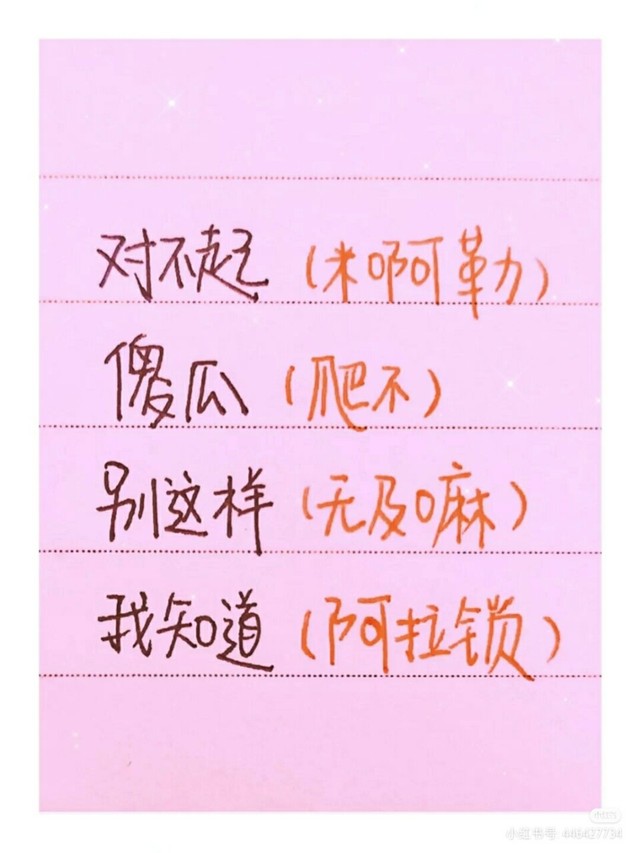 对不起（米啊勒）
傻瓜（爬不）
别这样（无及嘛）
我知道（阿拉锁）
小红书号: 448427734